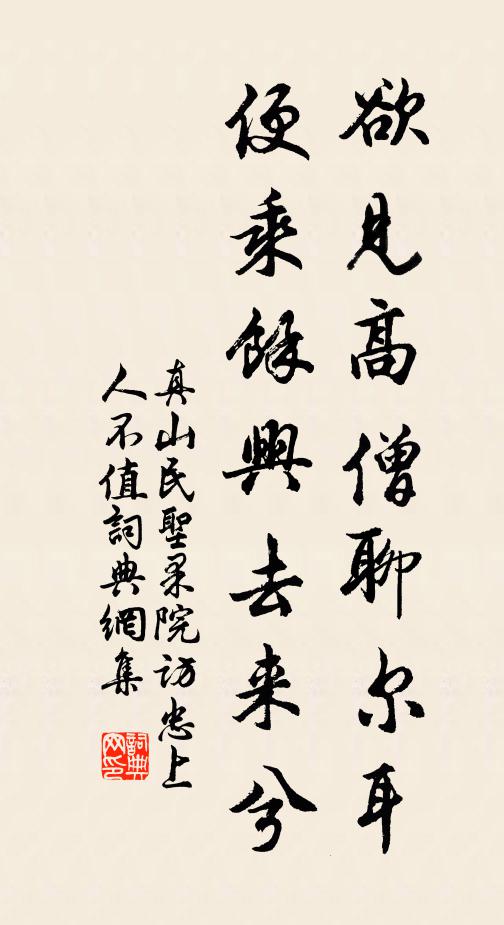 欲見高僧聊尔耳
便乘餘興去来兮
真山民聖果院訪忠上
人不值詞典網集
詞典网印